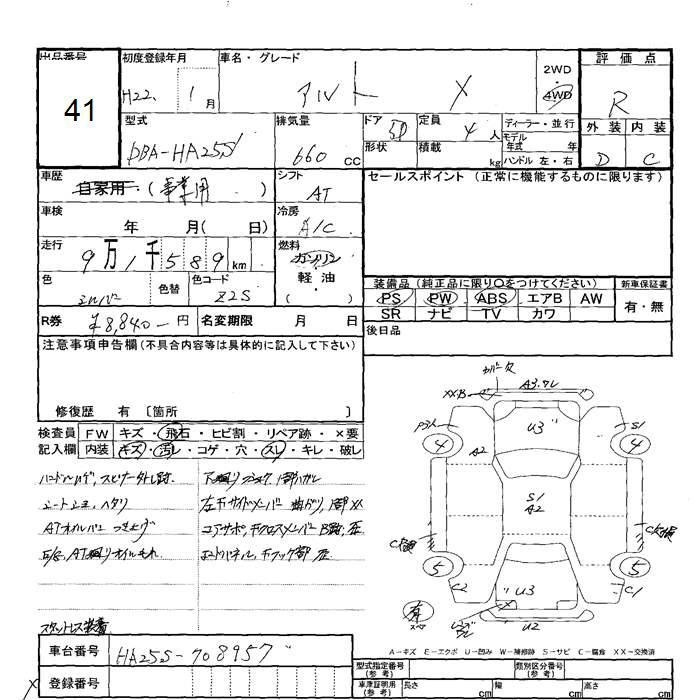 出品番号 41
初度登録年月 H22. 1月
車名・グレード アルト X
2WD
4WD
評価点
R
外装 内装
D C
型式 DBA-HA25S
排気量 660 CC
ドア 5D 定員 4人
形状 積載 kg
ディーラー・並行
モデル年式 年
ハンドル 左・右
車歴 自家用 (事業用)
シフト AT
セールスポイント (正常に機能するものに限ります)
車検 年 月( 日)
冷房 A/C
走行 9万1千589km
燃料 ガソリン
軽油
( )
色 シルバー 色替 色コード Z2S
装備品 (純正品に限り○をつけてください) 新車保証書
PS PW ABS エアB AW 有・無
SR ナビ TV カワ
R券 ¥8,840-円 名変期限 月 日
後日品
注意事項申告欄 (不具合内容等は具体的に記入して下さい)
修復歴 有 〔箇所
検査員 FW キズ・飛石・ヒビ割・リペア跡・×要
記入欄 内装 キズ・汚レ・コゲ・穴・スレ・キレ・破レ
カバー欠
XX・B A3.ワレ
U3
4 4
S1
A2
S1
A2
5 5
C2 U3 C1
有
U2
下廻りフック、1部ハガレ
シートシミ、ヘタリ
左F サイドメンバー 曲がり、1部XX
ATオイルパン つき上げ
E/G, AT廻りオイルもれ
スタットレス装着
A-キズ E-エクボ U-凹み W-補修跡 S-サビ C-腐食 XX-交換済
車台番号 HA25S-708957
登録番号
型式指定番号 (参考) 類別区分番号 (参考)
車庫証明用 (参考) 長さ cm 幅 cm 高さ cm